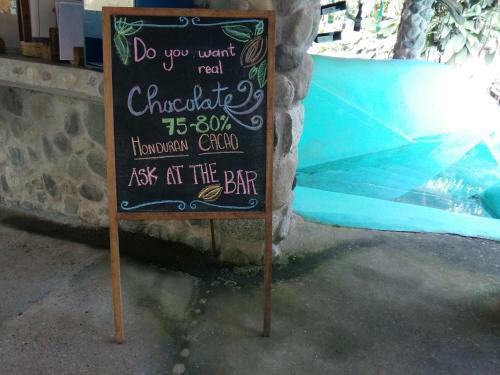 Do you want
real
Chocolate
75-80%
HONDURAN CACAO
ASK AT THE BAR